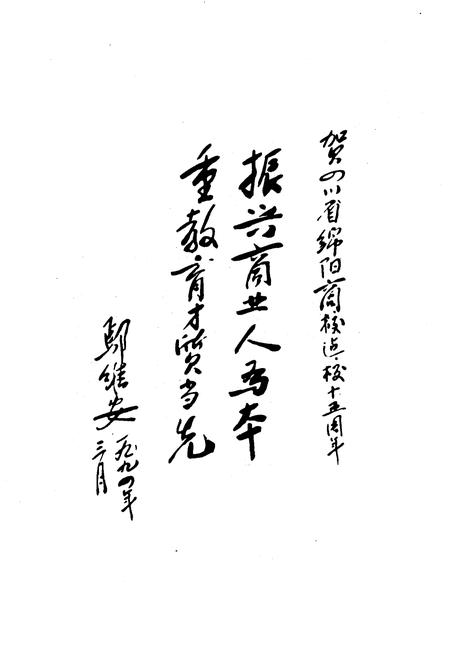 贺四川省绵阳商校建校十五周年
振兴商业人为本
重教育才质当先
维安
一九九四年
三月